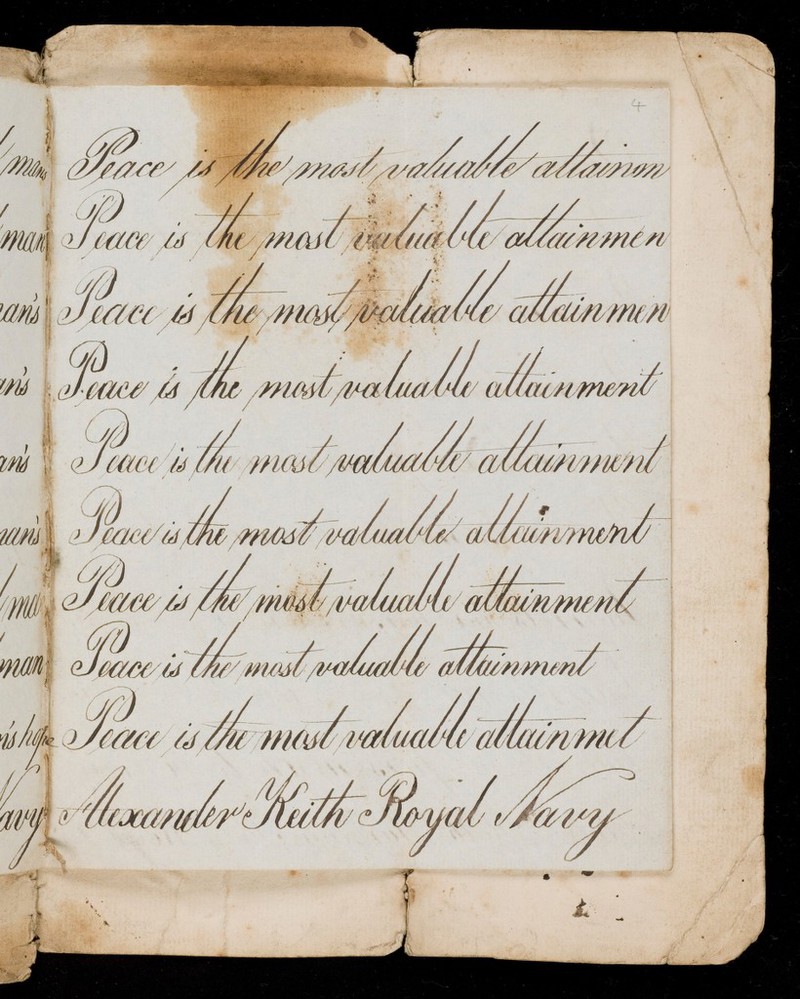 4
Peace is the most valuable attainm
Peace is the most valuable attainmen
Peace is the most valuable attainmen
Peace is the most valuable attainment
Peace is the most valuable attainment
Peace is the most valuable attainment
Peace is the most valuable attainment
Peace is the most valuable attainment
Peace is the most valuable attainmet
Alexander Keith Royal Navy